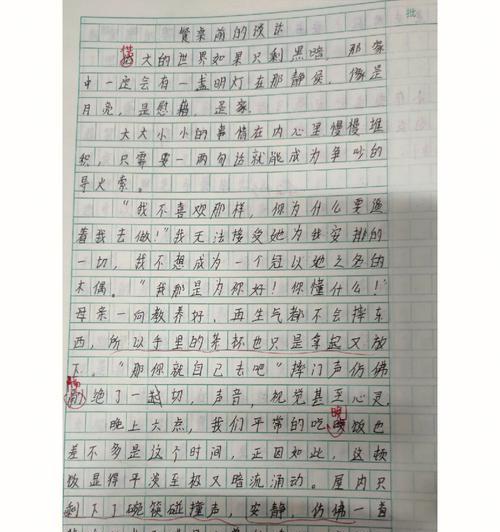 批
餐桌前的谈话
偌大的世界如果只剩黑暗，那家
中一定会有一盏明灯在那静候，像是
月亮，是慰藉，是家。
大大小小的事情在内心里慢慢堆
积，只需要一两句话就能成为争吵的
导火索。
“我不喜欢那样，你为什么要逼
着我去做！”我无法接受她为我安排的
一切，我不想成为一个冠以她之名的
木偶。“我那是为你好！你懂什么！”
母亲一向教养好，再生气都不会摔东
西，所以手里的茶杯也只是拿起又放
下。“那你就自己去吧”摔门声仿佛
隔绝了一切，声音，视觉甚至心灵。
晚上六点，我们平常的吃晚饭也
差不多是这个时间，正因如此，这顿
饭显得平淡至极又暗流涌动。屋内只
剩下了碗筷碰撞声，安静，仿佛一首